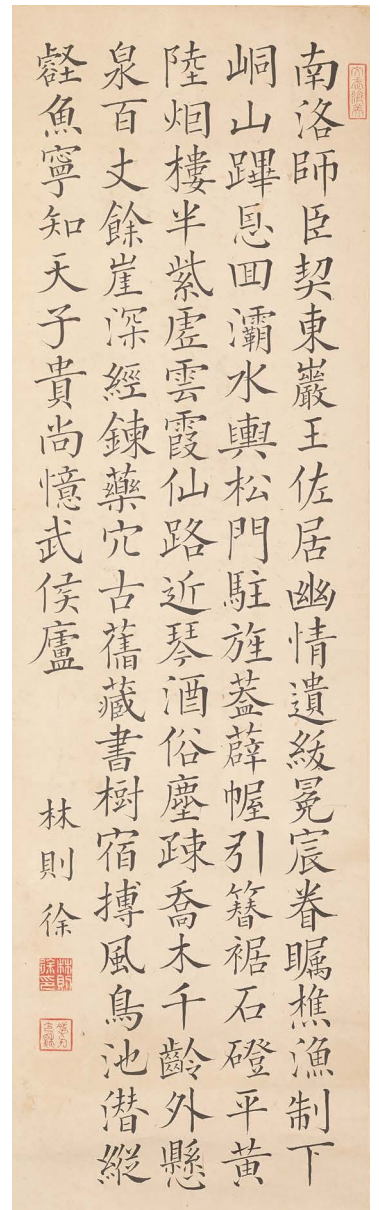 南洛師臣契東巖王佐居幽情遺紱冕宸眷矚樵漁制下
峒山蹕㤙囬灞水輿松門駐旌蓋薜幄引簪裾石磴平黃
陸烟樓半紫虛雲霞仙路近琴酒俗塵疎喬木千齡外懸
泉百丈餘崖深經鍊藥穴古舊藏書樹宿摶風鳥池潛縱
壑魚寧知天子貴尚憶武侯廬
林則徐
林則徐印